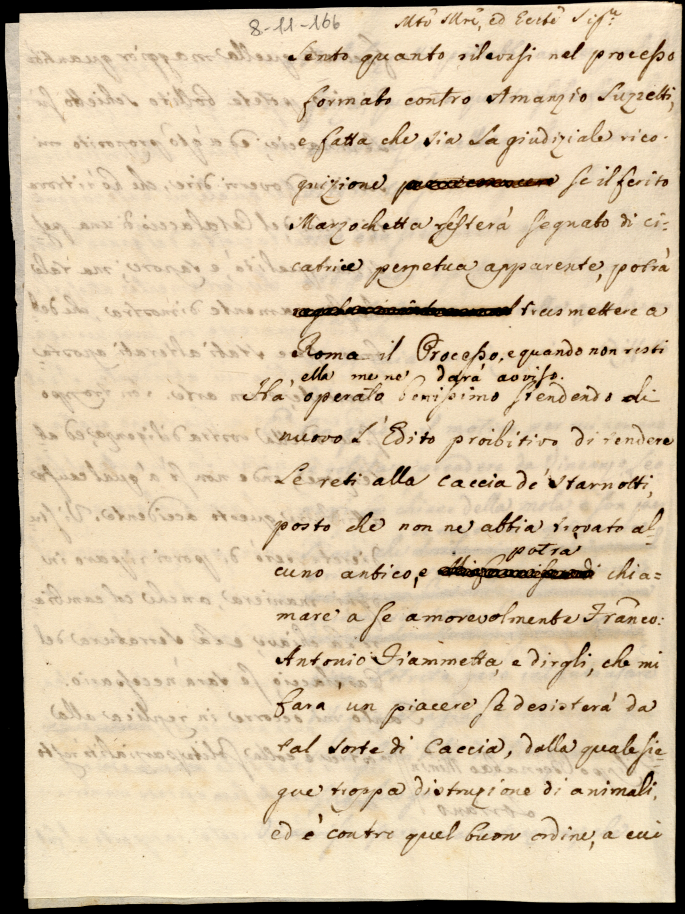 8-11-166
Mto Mre, ed Eccte Sigre
Sento quanto rilevasi nel processo
formato contro Amanzio Suzzetti,
e fatta che sia la giudiziale rico-
gnizione se il ferito
Marzochetta resterà segnato di ci-
catrice perpetua apparente, potrà
trasmettere a
Roma il Processo, e quando non resti
ella me ne darà avviso.
Hà operato benissimo stendendo di
nuovo l'Edito proibitivo di rendere
le reti alla caccia de' Starnotti,
posto che non ne abbia trovato al-
potrà
cuno antico, e chia-
mare a se amorevolmente Franco:
Antonio Giammetta, e dirgli, che mi
farà un piacere se desisterà da
tal sorte di Caccia, dalla quale sie-
gue troppa distruzione di animali,
ed è contro quel buon ordine, a cui